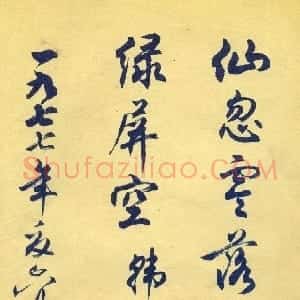 仙忽云落
绿屏空
一九七七年夏
Shufaziliao.COM